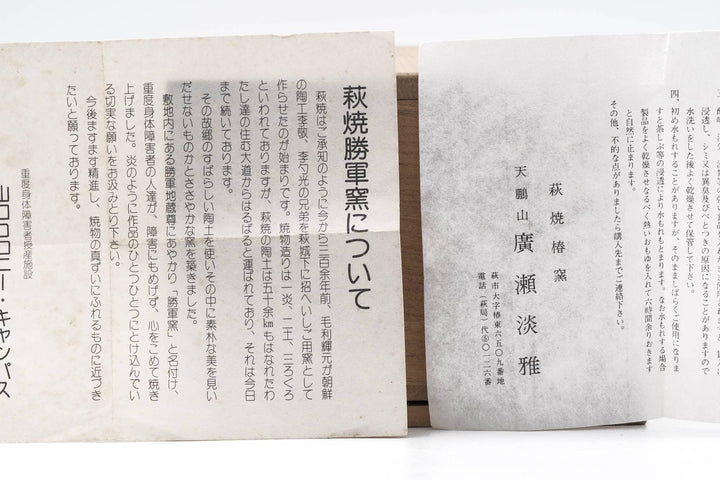 浸透し、シミ又は異臭及びべとつきの原因になることがありますので
水洗いをした後よく乾燥させて保管して下さい。
四、初め水もれすることがありますが、そのまましばらくご使用になりま
すと茶しぶ等の浸透により水もれもとまります。なお水もれする場合
製品をよく乾燥させなるべく熱いおもゆを入れて六時間余りおきます
と自然に止まります。
その他、不的な点がありましたら購入先までご連絡下さい。
萩焼椿窯
天鵬山 廣瀬淡雅
萩市大字椿東六五〇九番地
電話(萩局)代⑤〇一二六番
萩焼勝軍窯について
萩焼はご承知のように今から三百余年前、毛利輝元が朝鮮
の陶工李敬、李勺光の兄弟を萩城下に招へいしご用窯として
作らせたのが始まりです。焼物造りは一炎、二土、三ろくろ
といわれておりますが、萩焼の陶土は五十余kmもはなれたわ
たし達の住む大道からはるばると運ばれており、それは今日
まで続いております。
その故郷のすばらしい陶土を使いその中に素朴な美を見い
だせないものかとささやかな窯を築きました。
敷地内にある勝軍地蔵尊にあやかり「勝軍窯」と名付け、
重度身体障害者の人達が、障害にもめげず、心をこめて焼き
上げました。炎のように作品のひとつひとつにとけ込んでい
る切実な願いをお汲みとり下さい。
今後ますます精進し、焼物の真ずいにふれるものに近づき
たいと願っております。
重度身体障害者授産施設
山口コロニー・キャンパス